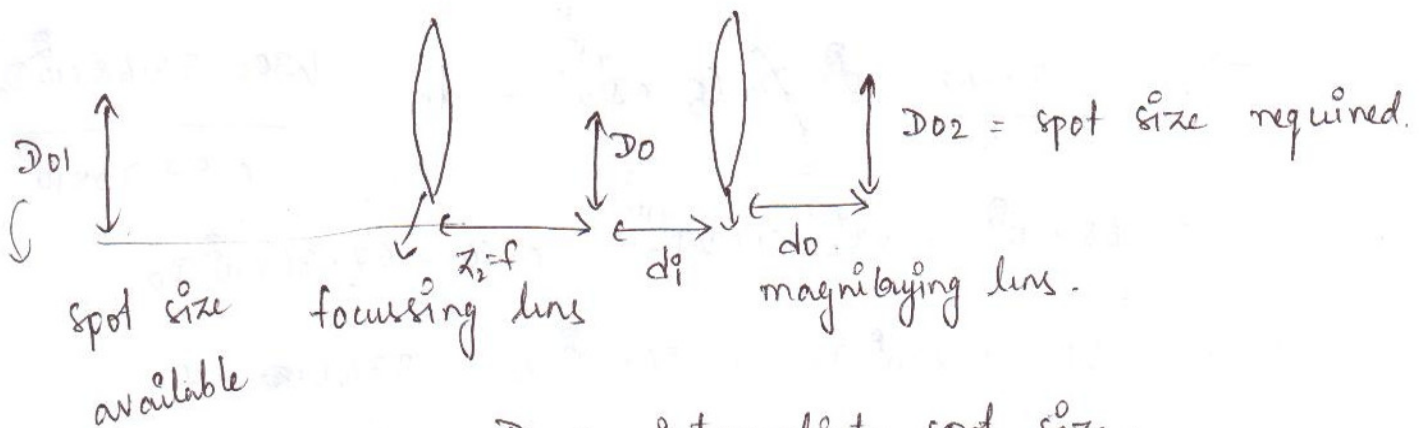 D01
D0
D02 = spot size required.
Z2=f
di
do.
spot size available
focussing lens
magnifying lens.